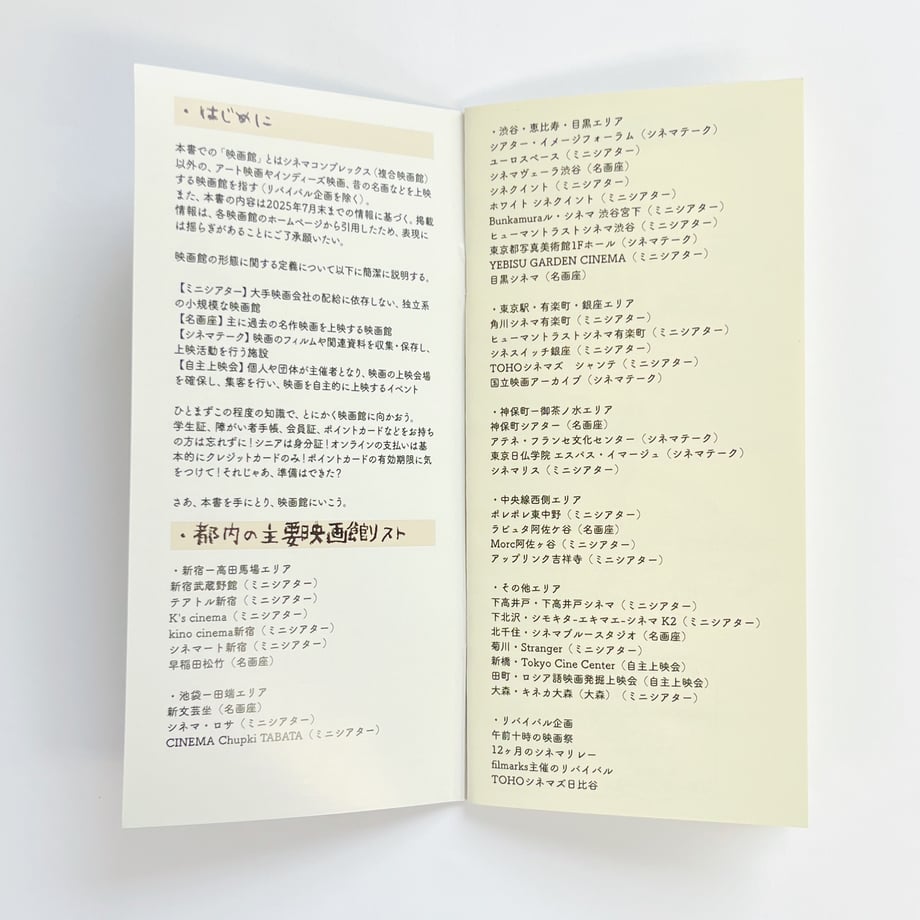 ・はじめに
本書での「映画館」とはシネマコンプレックス（複合映画館）
以外の、アート映画やインディーズ映画、昔の名画などを上映
する映画館を指す（リバイバル企画を除く）。
また、本書の内容は2025年7月末までの情報に基づく。掲載
情報は、各映画館のホームページから引用したため、表現に
は揺らぎがあることにご了承願いたい。
映画館の形態に関する定義について以下に簡潔に説明する。
【ミニシアター】大手映画会社の配給に依存しない、独立系
の小規模な映画館
【名画座】主に過去の名作映画を上映する映画館
【シネマテーク】映画のフィルムや関連資料を収集・保存し、
上映活動を行う施設
【自主上映会】個人や団体が主催者となり、映画の上映会場
を確保し、集客を行い、映画を自主的に上映するイベント
ひとまずこの程度の知識で、とにかく映画館に向かおう。
学生証、障がい者手帳、会員証、ポイントカードなどをお持ち
の方は忘れずに！シニアは身分証！オンラインの支払いは基
本的にクレジットカードのみ！ポイントカードの有効期限に気
をつけて！それじゃあ、準備はできた？
さあ、本書を手にとり、映画館にいこう。
・都内の主要映画館リスト
・新宿ー高田馬場エリア
新宿武蔵野館（ミニシアター）
テアトル新宿（ミニシアター）
K's cinema（ミニシアター）
kino cinema新宿（ミニシアター）
シネマート新宿（ミニシアター）
早稲田松竹（名画座）
・池袋ー田端エリア
新文芸坐（名画座）
シネマ・ロサ（ミニシアター）
CINEMA Chupki TABATA（ミニシアター）
・渋谷・恵比寿・目黒エリア
シアター・イメージフォーラム（シネマテーク）
ユーロスペース（ミニシアター）
シネマヴェーラ渋谷（名画座）
シネクイント（ミニシアター）
ホワイト シネクイント（ミニシアター）
Bunkamuraル・シネマ 渋谷宮下（ミニシアター）
ヒューマントラストシネマ渋谷（ミニシアター）
東京都写真美術館1Fホール（シネマテーク）
YEBISU GARDEN CINEMA（ミニシアター）
目黒シネマ（名画座）
・東京駅・有楽町・銀座エリア
角川シネマ有楽町（ミニシアター）
ヒューマントラストシネマ有楽町（ミニシアター）
シネスイッチ銀座（ミニシアター）
TOHOシネマズ　シャンテ（ミニシアター）
国立映画アーカイブ（シネマテーク）
・神保町ー御茶ノ水エリア
神保町シアター（名画座）
アテネ・フランセ文化センター（シネマテーク）
東京日仏学院 エスパス・イマージュ（シネマテーク）
シネマリス（ミニシアター）
・中央線西側エリア
ポレポレ東中野（ミニシアター）
ラピュタ阿佐ケ谷（名画座）
Morc阿佐ヶ谷（ミニシアター）
アップリンク吉祥寺（ミニシアター）
・その他エリア
下高井戸・下高井戸シネマ（ミニシアター）
下北沢・シモキタ-エキマエ-シネマ K2（ミニシアター）
北千住・シネマブルースタジオ（名画座）
菊川・Stranger（ミニシアター）
新橋・Tokyo Cine Center（自主上映会）
田町・ロシア語映画発掘上映会（自主上映会）
大森・キネカ大森（大森）（ミニシアター）
・リバイバル企画
午前十時の映画祭
12ヶ月のシネマリレー
filmarks主催のリバイバル
TOHOシネマズ日比谷